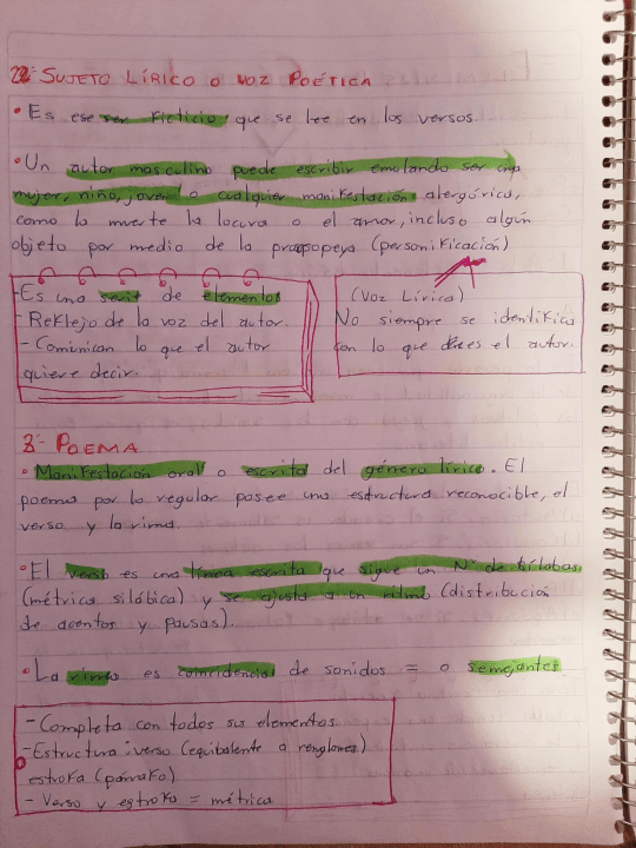 2- SUJETO LÍRICO O VOZ POÉTICA
• Es ese ser ficticio, que se lee en los versos.
• Un autor masculino puede escribir emulando ser una
mujer, niño, joven o cualquier manifestación alergórica,
como la muerte la locura o el amor, incluso algún
objeto por medio de la prosopopeya (personificación)
- Es una de elementos
- Reflejo de la voz del autor.
- Comunican lo que el autor
quiere decir.
(Voz Lírica)
No siempre se identifica
con lo que es el autor.
3- POEMA
• Manifestación oral o escrita del género lírico. El
poema por lo regular posee una estructura reconocible, el
verso y la rima.
• El verso es una línea escrita que sigue un N° de sílabas
(métrica silábica) y se ajusta a un ritmo (distribución
de acentos y pausas).
• La rima es coincidencia de sonidos = o semejantes.
- Completa con todos sus elementos.
- Estructura: verso (equibalente a renglones)
estrofa (párrafo)
- Verso y estrofa = métrica